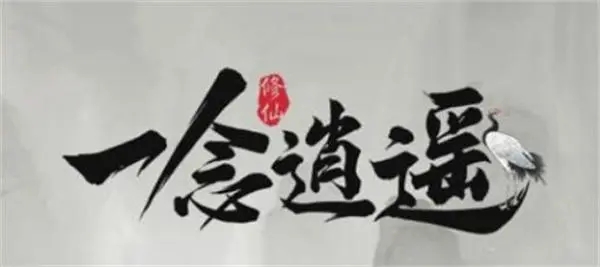 修仙
一念逍遥